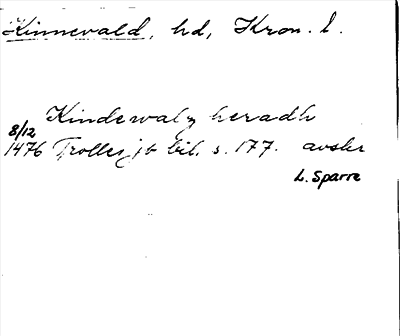 Kinnevald, hd, Kron. l.
Kindewalz heradh
8/12
1476 Trolles jb bil. s. 177. avskr
L. Sparre